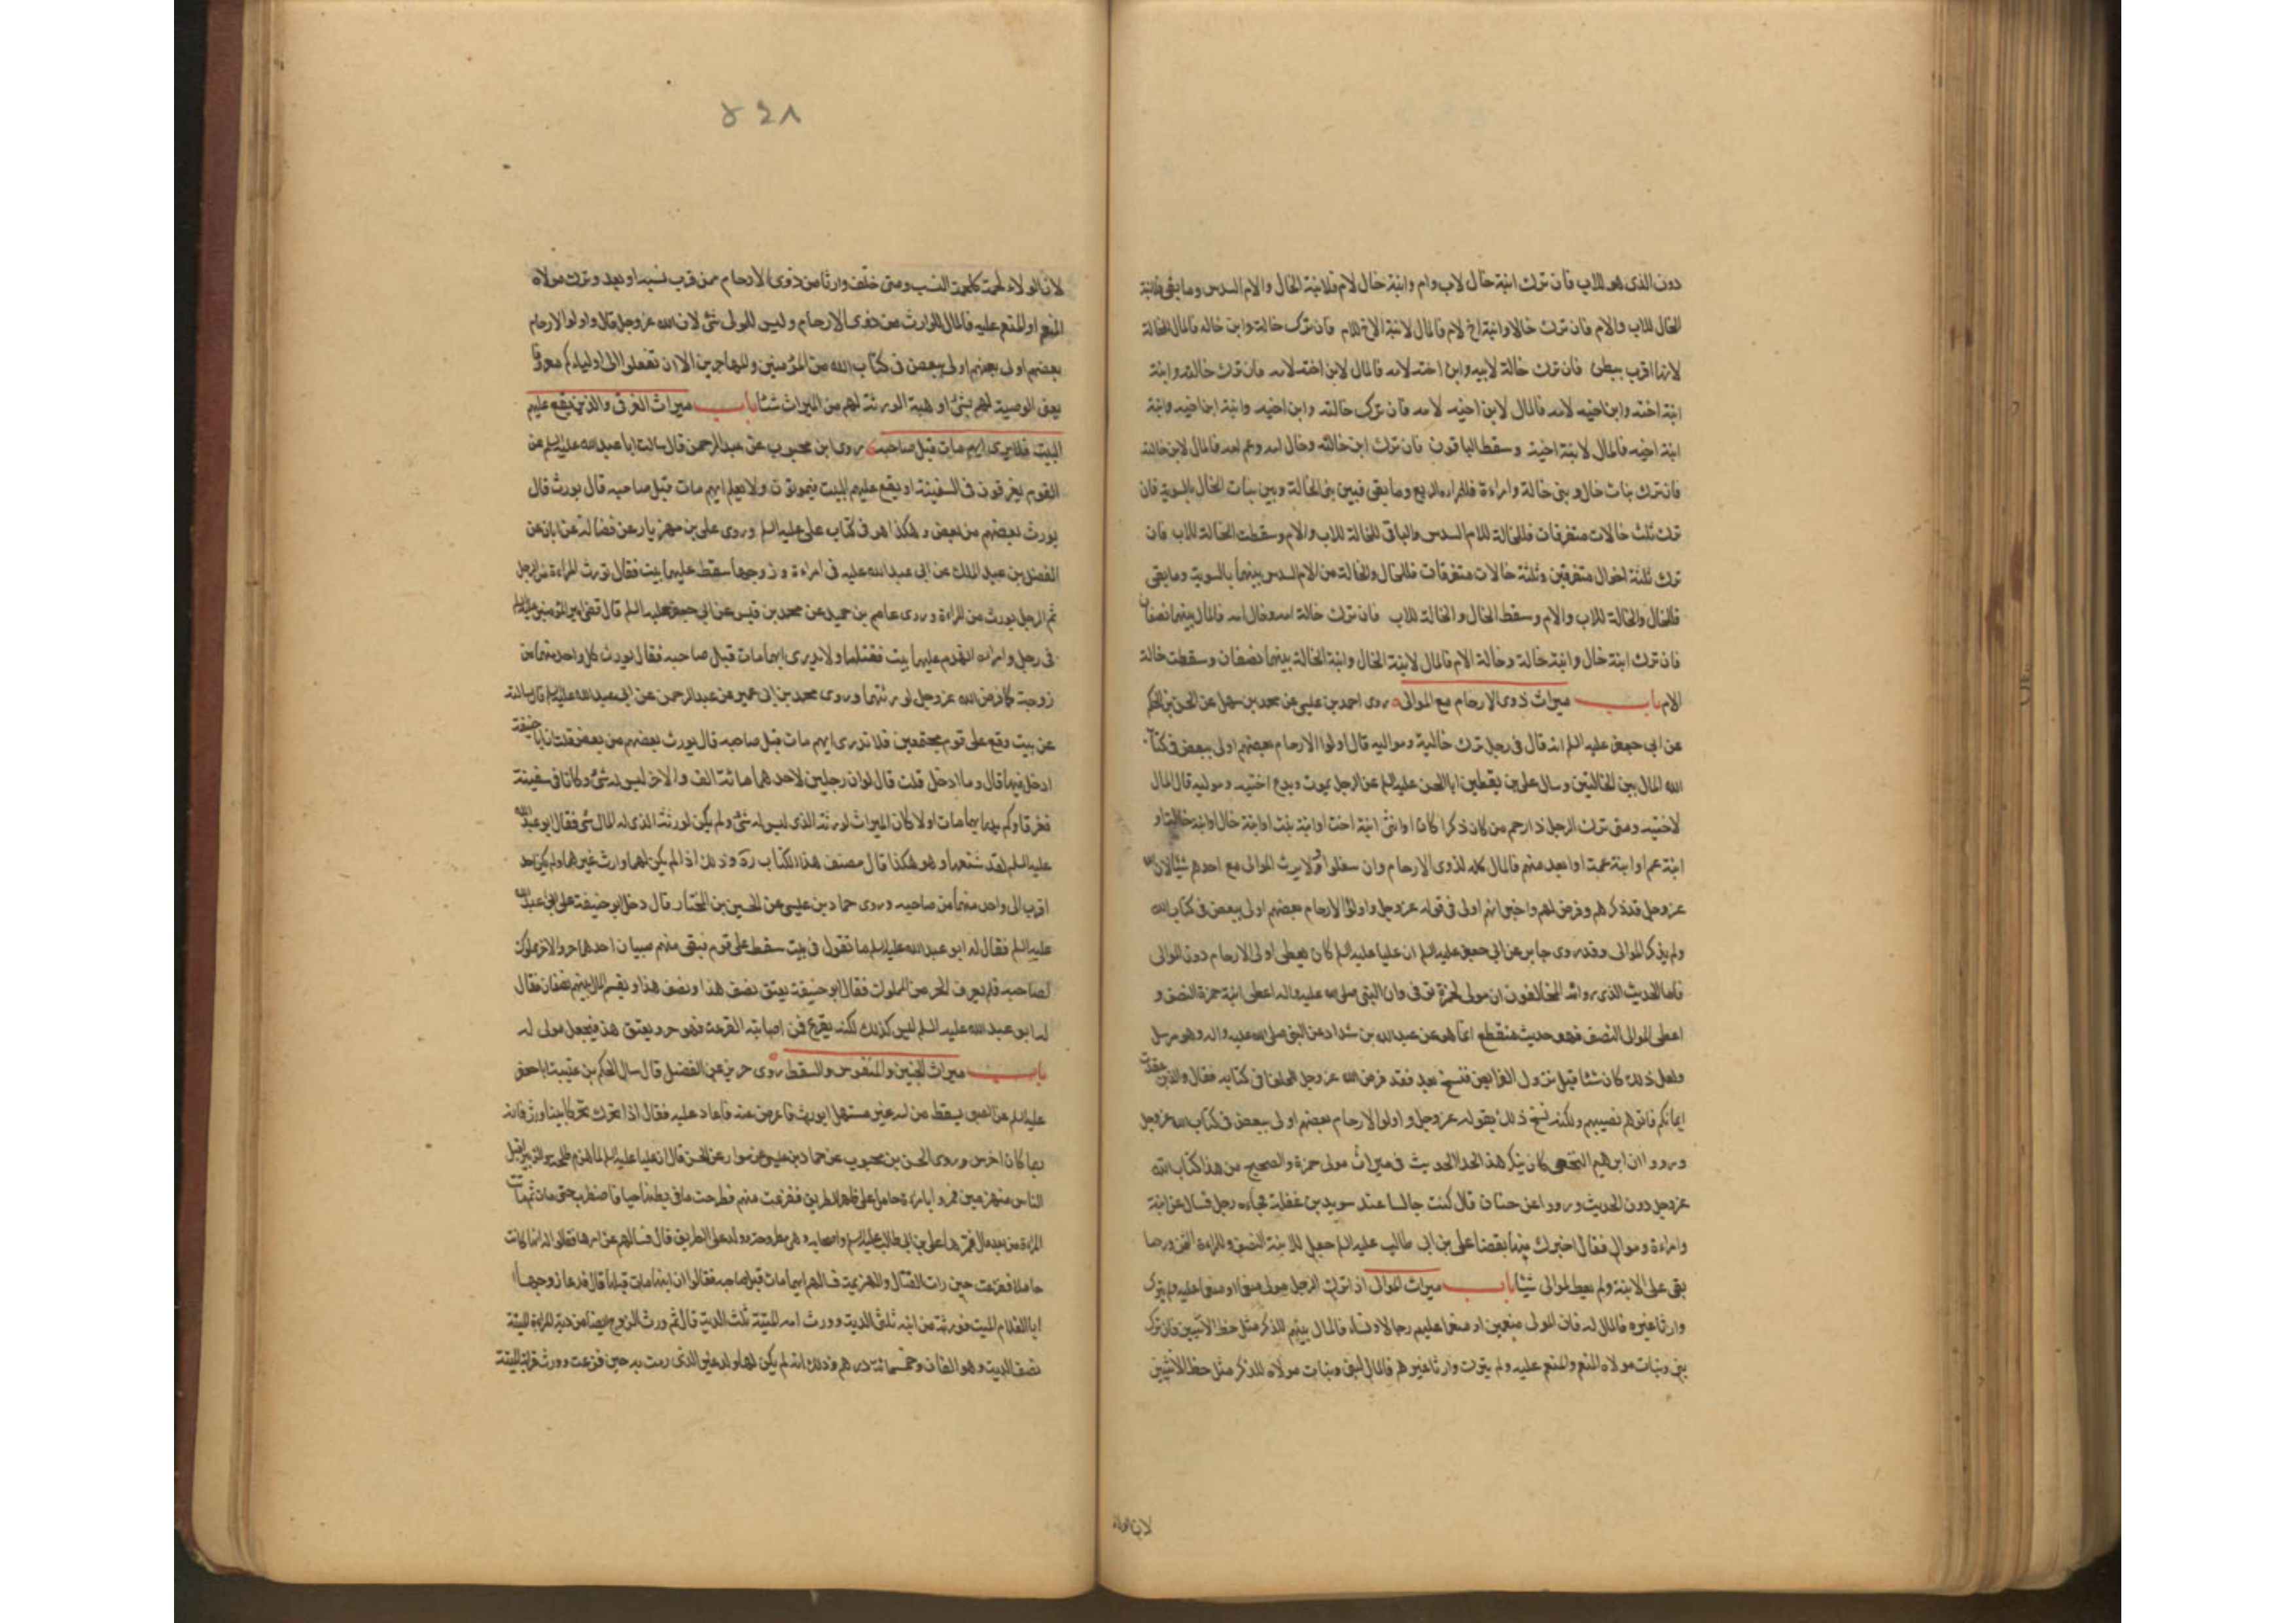 دون الذى هو للاب فان ترك ابنة خال لاب وام وابنة خال لام فلابنة الخال والام السدس وما بقى فلابنة
الخال للاب والام فان ترك خالا وابنة اخ لام فالمال لابنة الاخ للام فان ترك خالته وابن خاله فالمال للخالة
لانها اقرب ببطن فان ترك خالة لابيه وابن اخته لامه فالمال لابن اخته لامه فان ترك خالته وابنة
ابنة اخته وابن اخيه لامه فالمال لابن اخيه لامه فان ترك خالته وابن اخيه وابنة ابن اخيه وابنة
ابنة اخيه فالمال لابنة اخيه وسقط الباقون فان ترك ابن خالته وخال امه وعم امه فالمال لابن خالته
فان ترك بنات خال وبنى خالة وامراءة فللمراءه الربع وما بقى فبين بنى الخالة وبين بنات الخال بالسوية فان
ترك ثلث خالات متفرقات فللخالة للام السدس والباقى للخالة للاب والام وسقطت الخالة للاب فان
ترك ثلثة اخوال متفرقين وثلثة خالات متفرقات فللخال والخالة من الام السدس بينهما بالسوية وما بقى
فللخال والخالة للاب والام وسقط الخال والخالة للاب فان ترك خالة امه وخال امه فالمال بينهما نصفان
فان ترك ابنة خال وابنة خالة وخالة الام فالمال لابنة الخال وابنة الخالة بينهما نصفان وسقطت خالة
الام باب ميراث ذوى الارحام مع الموالى روى احمد بن على عن محمد بن سهل عن الحسن بن الحكم
عن ابى جعفر عليه السلم انه قال فى رجل ترك خالتيه ومواليه قال اولوا الارحام بعضهم اولى ببعض فى كتاب
الله المال بين الخالتين وسال على بن يقطين ابا الحسن عليه السلم عن الرجل يموت ويدع اخته ومواليه قال المال
لاخته ومتى ترك الرجل ذا رحم من كان ذكرا كان او انثى ابنة اخت او ابنة بنت او ابنة خال او ابنة خالة او
ابنة عم او ابنة عمة او ابعد منهم فالمال كله لذوى الارحام وان سفلوا ولا يرث الموالى مع احدهم شيئا لان الله
عز وجل قد ذكرهم وفرض لهم واخبر انهم اولى فى قوله عز وجل واولوا الارحام بعضهم اولى ببعض فى كتاب الله
ولم يذكر الموالى وقد روى جابر عن ابى جعفر عليه السلم ان عليا عليه السلم كان يعطى اولى الارحام دون الموالى
فاما الحديث الذى رواه المخالفون ان مولى لحمزة توفى وان النبى صلى الله عليه واله اعطى ابنة حمزة النصف و
اعطى الموالى النصف فهو حديث منقطع انما هو عن عبدالله بن شداد عن النبى صلى الله عليه واله وهو مرسل
ولعل ذلك كان شيئا قبل نزول الفرايض فنسخ بعد فقد فرض الله عز وجل للحلفا فى كتابه فقال والذين عقدت
ايمانكم فاتوهم نصيبهم ولكنه نسخ ذلك بقوله عز وجل واولوا الارحام بعضهم اولى ببعض فى كتاب الله عز وجل
ورووا ان ابرهيم النخعى كان ينكر هذا الحديث فى ميراث مولى حمزة والصحيح من هذا كتاب الله
عز وجل دون الحديث ورووا عن حنان قال كنت جالسا عند سويد بن غفلة فجاءه رجل فسال عن ابنة
وامراءة وموالى فقال اخبرك فيها بقضا على بن ابى طالب عليه السلم جعل للابنة النصف وللمراءة الثمن ورد ما
بقى على الابنة ولم يعط الموالى شيئا باب ميراث الموالى اذا ترك الرجل مولى منعما او منعما عليه ولم يترك
وارثا غيره فالمال له فان ترك موالى منعمين او منعما عليهم رجالا ونساء فالمال بينهم للذكر مثل حظ الانثيين فان ترك
بنى وبنات مولاه المنعم والمنعم عليه ولم يترك وارثا غيرهم فالمال لبنى وبنات مولاه للذكر مثل حظ الانثيين
لان الولاء
٤٢٨
لان الولاء لحمة كلحمة النسب ومتى خلف وارثا من ذوى الارحام ممن قرب نسبه او بعد وترك مولاه
المنعم او المنعم عليه فالمال للوارث من ذوى الارحام وليس للمولى شئ لان الله عز وجل قال واولوا الارحام
بعضهم اولى ببعض فى كتاب الله من المؤمنين والمهاجرين الا ان تفعلوا الى اوليائكم معروفا
يعنى الوصية لهم بشئ او هبة الورثة لهم من الميراث شيئا باب ميراث الغرقى والذين يقع عليهم
البيت فلا يدرى ايهم مات قبل صاحبه روى ابن محبوب عن عبد الرحمن قال سالت ابا عبدالله عليه السلم عن
القوم يغرقون فى السفينة او يقع عليهم البيت فيموتون ولا يعلم ايهم مات قبل صاحبه قال يورث قال
يورث بعضهم من بعض وهكذا هو فى كتاب على عليه السلم وروى على بن مهزيار عن فضالة عن ابان عن
الفضل بن عبد الملك عن ابى عبدالله عليه فى امراءة وزوجها سقط عليهما بيت فقال تورث المراءة من الرجل
ثم الرجل يورث من المراءة وروى عاصم بن حميد عن محمد بن قيس عن ابى جعفر عليه السلم قال قضى امير المؤمنين عليه السلم
فى رجل وامراءة انهدم عليهما بيت فقتلهما ولا يدرى ايهما مات قبل صاحبه فقال يورث كل واحد منهما من
زوجه كما فرض الله عز وجل لورثتهما وروى محمد بن ابى عمير عن عبد الرحمن عن ابى عبدالله عليه السلم قال سالته
عن بيت وقع على قوم مجتمعين فلا تدرى ايهم مات قبل صاحبه قال يورث بعضهم من بعض قلت ان ابا حنيفة
ادخل فيها قال وما ادخل قلت قال لو ان رجلين لاحدهما مائة الف والاخر ليس له شئ وكانا فى سفينة
فغرقا ولم يدر ايهما مات اولا كان الميراث لورثة الذى ليس له شئ ولم يكن لورثة الذى له المال شئ فقال ابو عبدالله
عليه السلم لقد شنعها وهو هكذا قال مصنف هذا الكتاب ره وذلك اذا لم يكن لهما وارث غيرهما ولم يكن احد
اقرب الى واحد منهما من صاحبه وروى حماد بن عيسى عن الحسين بن المختار قال دخل ابو حنيفة على ابى عبدالله
عليه السلم فقال له ابو عبدالله عليه السلم ما تقول فى بيت سقط على قوم فبقى منهم صبيان احدهما حر والاخر مملوك
لصاحبه فلم يعرف الحر من المملوك فقال ابو حنيفة يعتق نصف هذا ونصف هذا ويقسم المال بينهم نصفان فقال
له ابو عبدالله عليه السلم ليس كذلك لكنه يقرع فمن اصابته القرعة فهو حر ويعتق هذا فيجعل مولى له
باب ميراث الجنين والمنفوس والسقط روى حريز عن الفضيل قال سال الحكم بن عتيبة ابا جعفر
عليه السلم عن الصبى يسقط من امه غير مستهل ايورث فاعرض عنه فاعاد عليه فقال اذا تحرك تحركا بينا ورث فانه
ربما كان اخرس وروى الحسن بن محبوب عن حماد بن عيسى عن سوار عن الحسن قال ان عليا عليه السلم لما هزم طلحة والزبير اقبل
الناس منهزمين فمروا بامراءة حامل على ظهر الطريق ففزعت منهم فطرحت ما فى بطنها حيا فاضطرب حتى مات ثم ماتت
المراءة من بعده فمر بها على بن ابى طالب عليه السلم واصحابه وهى مطروحة وولدها على الطريق قال فسالهم عن امرها فقالوا له انها كانت
حاملا ففزعت حين رات القتال والهزيمة فسالهم ايهما مات قبل صاحبه فقالوا ان ابنها مات قبلها قال فدعا زوجها
ابا الغلام الميت فورثه من ابنه ثلثى الدية وورث امه الميتة ثلث الدية قال ثم ورث الزوج ايضا من دية المراءة الميتة
نصف الدية وهو الفان وخمسمائة درهم وذلك انه لم يكن لها ولد غير الذى رمت به حين فزعت وورث قرابة الميتة